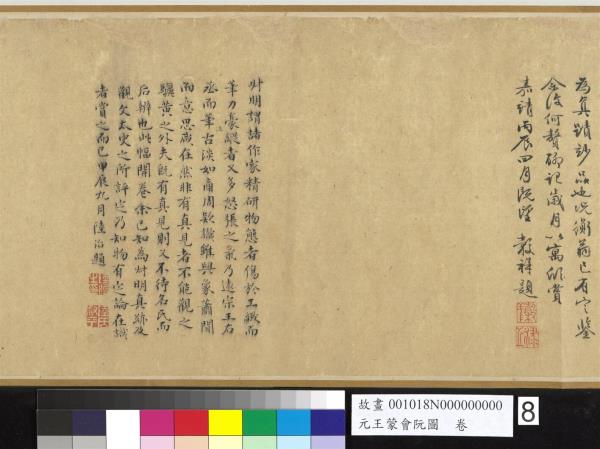 為真蹟妙品也況衡翁已有定鑒
余復何贅聊記歲月以寓欣賞
嘉靖丙辰四月既望 穀祥題
叔明謂諸作家精研物態者傷於工緻而
筆力豪縱者又多怒張之氣乃遠宗王右
丞而筆古淡如商周欵識雖興象蕭閒
而意思咸在然非有真見者不能觀之
驪黃之外夫既有真見則又不待名氏而
后辨也此幅開卷余已知為叔明真跡及
觀文太史之所評定乃知物有定論在識
者賞之而已甲辰九月 陸治題
故畫 001018N000000000
元王蒙會阮圖 卷
8